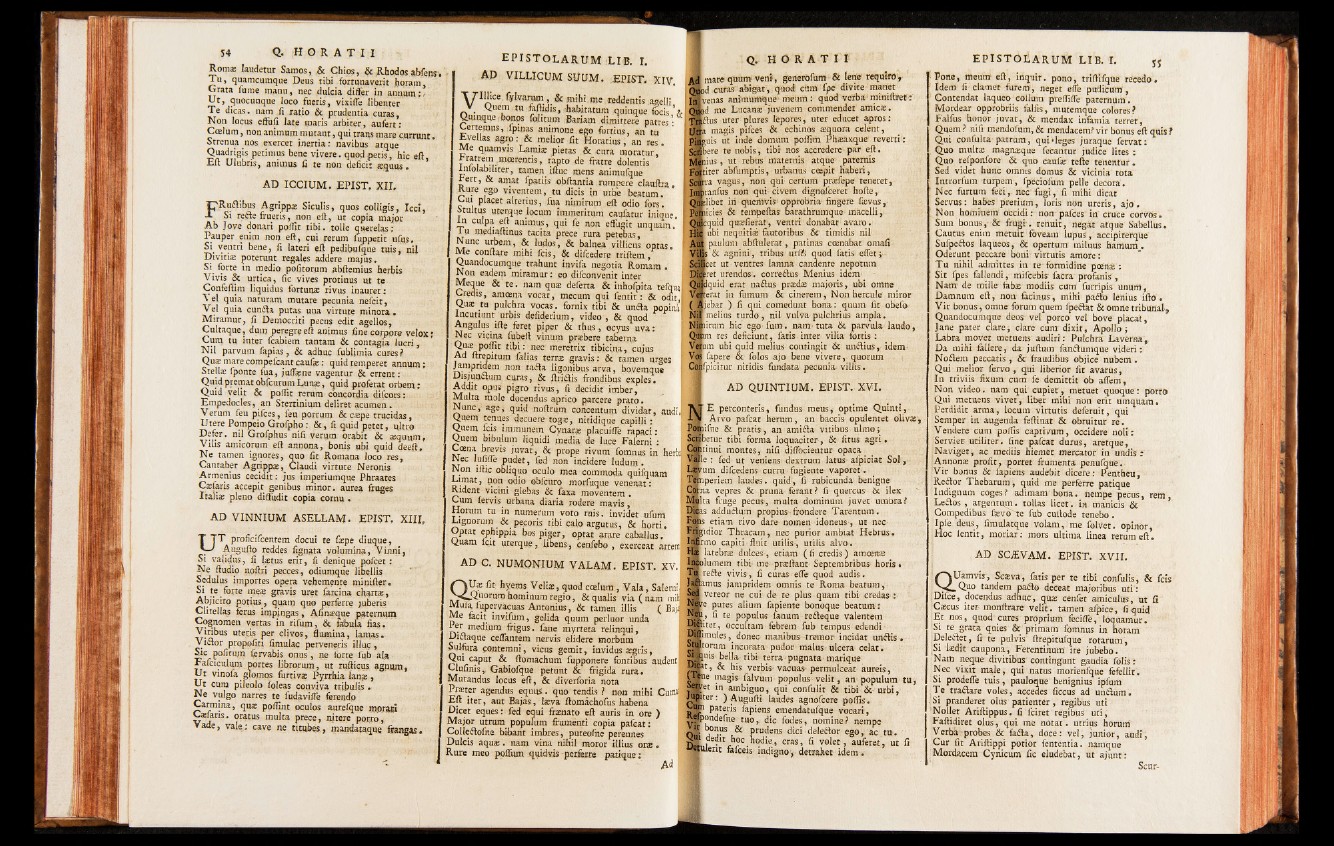 54 Q. HORATII
Romæ laudetur Samos, & Chios, & Rhodos absens.
Tu, quamcumque Deus tibi fortunaverit horam,
Grata sume manu, nec dulcia differ in annum:
Ut, quocunque loco fueris, vixisse libenter
Te dicas. nam si ratio & prudentia curas,
Non locus effusi late maris arbiter, aufert:
Cœlum, non animum mutant, qui trans mare currunt.
Strenua nos exercet inertia: navibus atque
Quadrigis petimus bene vivere. quod petis, hic est,
Est Ulubris, animus si te non deficit æquus.
AD ICCIUM. EPIST. XII.
FRuctibus Agrippæ Siculis, quos colligis, Icci,
Si recte frueris, non est, ut copia major
Ab Jove donari possit tibi. tolle querelas:
Pauper enim non est, cui rerum suppetit usus.
Si ventri bene, si lateri est pedibusque tuis, nil
Divitiæ poterunt regales addere majus.
Si forte in medio positorum abstemius herbis
Vivis & urtica, sic vives protinus ut te
Confestim liquidus fortunæ rivus inauret:
Vel quia naturam mutare pecunia nescit,
Vel quia cuncta putas una virtute minora.
Miramur, si Democriti pecus edit agellos,
Cultaque, dum peregre est animus sine corpore velox:
Cum tu inter scabiem tantam & contagia lucri,
Nil parvum sapias, & adhuc sublimia cures?
Quæ mare compescant causæ: quid temperet annum:
Stellæ sponte sua, jussæne vagentur & errent:
Quid premat obscurum Lunæ, quid proferat orbem:
Quid velit & possit rerum concordia discors:
Empedocles, an Stertinium deliret acumen.
Verum seu pisces, seu porrum & cæpe trucidas,
Utere Pompeio Grospho: &, si quid petet, ultro
Defer. nil Grosphus nisi verum orabit & æquum.
Vilis amicorum est annona, bonis ubi quid deest.
Ne tamen ignores, quo sit Romana loco res,
Cantaber Agrippæ, Claudi virtute Neronis
Armenius cecidit: jus imperiumque Phraates
Cæsaris accepit genibus minor. aurea fruges
Italiæ pleno diffudit copia cornu.
AD VINNIUM ASELLAM. EPIST. XIII.
UT proficiscentem docui te sæpe diuque,
Augusto reddes signata volumina, Vinni,
Si validus, si lætus erit, si denique poscet:
Ne studio nostri pecces, odiumque libellis
Sedulus importes opera vehemente minister.
Si te forte meæ gravis uret sarcina chartæ,
Abjicito potius, quam quo perferre juberis
Clitellas ferus impingas, Asinæque paternum
Cognomen vertas in risum, & fabula fias.
Viribus uteris per clivos, flumina, lamas.
Victor propositi simulac perveneris illuc,
Sic positum servabis onus, ne forte sub ala
Fasciculum portes librorum, ut rusticus agnum,
Ut vinosa glomos furtivæ Pyrrhia lanæ,
Ut cum pileolo soleas conviva tribulis.
Ne vulgo narres te sudavisse ferendo
Carmina, quæ possint oculos auresque morari
Cæsaris. oratus multa prece, nitere porro,
Vade, vale: cave ne titubes, mandataque frangas.
EPISTOLARUM LIB. I.
AD VILLICUM SUUM. EPIST. XIV.
VIllice sylvarum, & mihi me reddentis agelli,
Quem tu fastidis, habitatum quinque focis, &
Quinque bonos solitum Bariam dimittere patres:
Certemus, spinas animone ego fortius, an tu
Evellas agro: & melior sit Horatius, an res.
Me quamvis Lamiæ pietas & cura moratur,
Fratrem mœrentis, rapto de fratre dolentis
Insolabiliter, tamen istuc mens animusque
Fert, & amat spatiis obstantia rumpere claustra.
Rure ego viventem, tu dicis in urbe beatum.
Cui placet alterius, sua nimirum est odio sors.
Stultus uterque locum immeritum causatur inique.
In culpa est animus, qui se non effugit unquam.
Tu mediastinus tacita prece rura petebas,
Nunc urbem, & ludos, & balnea villicus optas.
Me constare mihi scis, & discedere tristem,
Quandocumque trahunt invisa negotia Romam.
Non eadem miramur: eo disconvenit inter
Meque & te. nam quæ deserta & inhospita tesqua
Credis, amœna vocat, mecum qui sentit: & odit,
Quæ tu pulchra vocas. fornix tibi & uncta popina
Incutiunt urbis desiderium, video, & quod
Angulus iste feret piper & thus, ocyus uva:
Nec vicina subest vinum præbere taberna
Quæ possit tibi: nec meretrix tibicina, cujus
Ad strepitum salias terræ gravis: & tamen urges
Jampridem non tacta ligonibus arva, bovemque
Disjunctum curas, & strictis frondibus exples.
Addit opus pigro rivus, si decidit imber,
Multa mole docendus aprico parcere prato.
Nunc, age, quid nostrum concentum dividat, audi.
Quem tenues decuere togæ, nitidique capilli:
Quem scis immunem Cynaræ placuisse rapaci:
Quem bibulum liquidi media de luce Falerni:
Cœna brevis juvat, & prope rivum somnus in herba
Nec lusisse pudet, sed non incidere ludum.
Non istic obliquo oculo mea commoda quisquam
Limat, non odio obscuro morsuque venenat:
Rident vicini glebas & saxa moventem.
Cum servis urbana diaria rodere mavis,
Horum tu in numerum voto ruis. invidet usum
Lignorum & pecoris tibi calo argutus, & horti.
Optat ephippia bos piger, optat arare caballus.
Quam scit uterque, libens, censebo, exerceat artem
AD C. NUMONIUM VALAM. EPIST. XV.
QUæ sit hyems Veliæ, quod cœlum, Vala, Salerni
Quorum hominum regio, & qualis via (nam mihi
Musa supervacuas Antonius, & tamen illis (Bajas
Me facit invisum, gelida quum perluor unda
Per medium frigus. sane myrteta relinqui,
Dictaque cessantem nervis elidere morbum
Sulfura contemni, vicus gemit, invidus ægris,
Qui caput & stomachum supponere fontibus audent
Clusinis, Gabiosque petunt & frigida rura.
Mutandus locus est, & diversoria nota
Præter agendus equus. quo tendis? non mihi Cumas
Est iter, aut Bajas, læva stomachosus habena
Dicet eques: sed equi frænato est auris in ore)
Major utrum populum frumenti copia pascat:
Collectosne bibant imbres, puteosne perennes
Dulcis aquæ. nam vina nihil moror illius oræ.
Rure meo possum quidvis perferre patique:
Ad
Q. HORATII
Ad mare quum veni, generosum & lene requiro,
Quod curas abigat, quod cum spe divite manet
In venas animumque meum: quod verba ministret:
Quod me Lucanæ juvenem commendet amicæ.
Tractus uter plures lepores, uter educet apros:
Utra magis pisces & echinos æquora celent,
Pinguis ut inde domum possim Phæaxque reverti:
Scribere te nobis, tibi nos accredere par est.
Mænius, ut rebus maternis atque paternis
Fortiter absumptis, urbanus cœpit haberi,
Scurra vagus, non qui certum præsepe teneret,
Impransus non qui civem dignosceret hoste,
Quælibet in quemvis opprobria fingere sævus,
Pernicies & tempestas barathrumque macelli,
Quicquid quæsierat, ventri donabat avaro.
Hic ubi nequitiæ fautoribus & timidis nil
Aut paulum abstulerat, patinas cœnabat omasi
Vilis & agnini, tribus ursis quod satis esset;
Scilicet ut ventres lamna candente nepotum
Diceret urendos. correctus Menius idem
Quidquid erat nactus prædæ majoris, ubi omne
Verterat in fumum & cinerem, Non hercule miror
(Ajebat) si qui comedunt bona: quum sit obeso
Nil melius turdo, nil vulva pulchrius ampla.
Nimirum hic ego sum. nam tuta & parvula laudo,
Quum res deficiunt, satis inter vilia fortis:
Verum ubi quid melius contingit & unctius, idem
Vos sapere & solos ajo bene vivere, quorum
Conspicitur nitidis fundata pecunia villis.
AD QUINTIUM. EPIST. XVI.
NE perconteris, fundus meus, optime Quinti,
Arvo pascat herum, an baccis opulentet olivæ,
Pomisne & pratis, an amicta vitibus ulmo;
Scribetur tibi forma loquaciter, & situs agri.
Continui montes, nisi dissocientur opaca
Valle: sed ut veniens dextrum latus aspiciat Sol,
Lævum discedens curru fugiente vaporet.
Temperiem laudes. quid, si rubicunda benigne
Corna vepres & pruna ferant? si quercus & ilex
Multa fruge pecus, multa dominum juvet umbra?
Dicas adductum propius frondere Tarentum.
Fons etiam rivo dare nomen idoneus, ut nec
Frigidior Thracam, nec purior ambiat Hebrus.
Infirmo capiti fluit utilis, utilis alvo.
Hæ latebræ dulces, etiam (si credis) amœnæ
Incolumem tibi me præstant Septembribus horis.
Tu recte vivis, si curas esse quod audis.
Jactamus jampridem omnis te Roma beatum,
Sed vereor ne cui de te plus quam tibi credas:
Neve putes alium sapiente bonoque beatum:
Neu, si te populus sanum recteque valentem
Dictitet, occultam febrem sub tempus edendi
Dissimules, donec manibus tremor incidat unctis.
Stultorum incurata pudor malus ulcera celat.
Si quis bella tibi terra pugnata marique
Dicat, & his verbis vacuas permulceat aureis,
(Tene magis salvum populus velit, an populum tu,
Servet in ambiguo, qui consulit & tibi & urbi,
Jupiter:) Augusti laudes agnoscere possis.
Cum pateris sapiens emendatusque vocari,
Respondesne tuo, dic sodes, nomine? nempe
Vir bonus & prudens dici delector ego, ac tu.
Qui dedit hoc hodie, cras, si volet, auferet, ut si
Detulerit fasceis indigno, detrahet idem.
EPISTOLARUM LIB. I. 55
Pone, meum est, inquit. pono, tristisque recedo.
Idem si clamet furem, neget esse pudicum,
Contendat laqueo collum pressisse paternum.
Mordear opprobriis falsis, mutemque colores?
Falsus honor juvat, & mendax infamia terret,
Quem? nisi mendosum, & mendacem? vir bonus est quis?
Qui consulta patrum, qui leges juraque servat:
Quo multæ magnæque secantur judice lites:
Quo responsore & quo causæ teste tenentur.
Sed videt hunc omnis domus & vicinia tota
Introrsum turpem, speciosum pelle decora.
Nec furtum feci, nec fugi, si mihi dicat
Servus: habes pretium, loris non ureris, ajo.
Non hominem occidi: non pasces in cruce corvos.
Sum bonus, & frugi. renuit, negat atque Sabellus.
Cautus enim metuit foveam lupus, accipiterque
Suspectos laqueos, & opertum miluus hamum.
Oderunt peccare boni virtutis amore:
Tu nihil admittes in te formidine pœnæ:
Sit spes fallendi, miscebis sacra profanis,
Nam de mille fabæ modiis cum surripis unum,
Damnum est, non facinus, mihi pacto lenius isto.
Vir bonus, omne forum quem spectat & omne tribunal,
Quandocumque deos vel porco vel bove placat,
Jane pater clare, clare cum dixit, Apollo;
Labra movet metuens audiri: Pulchra Laverna,
Da mihi fallere, da justum sanctumque videri:
Noctem peccatis, & fraudibus objice nubem.
Qui melior servo, qui liberior sit avarus,
In triviis fixum cum se demittit ob assem,
Non video. nam qui cupiet, metuet quoque: porro
Qui metuens vivet, liber mihi non erit umquam.
Perdidit arma, locum virtutis deseruit, qui
Semper in augenda festinat & obruitur re.
Vendere cum possis captivum, occidere noli:
Serviet utiliter. sine pascat durus, aretque,
Naviget, ac mediis hiemet mercator in undis:
Annonæ prosit, portet frumenta penusque.
Vir bonus & sapiens audebit dicere: Pentheu,
Rector Thebarum, quid me perferre patique
Indignum coges? adimam bona. nempe pecus, rem,
Lectos, argentum. tollas licet. in manicis &
Compedibus sævo te sub custode tenebo.
Ipse deus, simulatque volam, me solvet. opinor,
Hoc sentit, moriar: mors ultima linea rerum est.
AD SCÆVAM. EPIST. XVII.
QUamvis, Scæva, satis per te tibi consulis, & scis
Quo tandem pacto deceat majoribus uti:
Disce, docendus adhuc, quæ censet amiculus, ut si
Cæcus iter monstrare velit. tamen aspice, si quid
Et nos, quod cures proprium fecisse, loquamur.
Si te grata quies & primam somnus in horam
Delectet, si te pulvis strepitusque rotarum,
Si lædit caupona, Ferentinum ire jubebo.
Nam neque divitibus contingunt gaudia solis:
Nec vixit male, qui natus moriensque fefellit.
Si prodesse tuis, pauloque benignius ipsum
Te tractare voles, accedes siccus ad unctum.
Si pranderet olus patienter, regibus uti
Nollet Aristippus. si sciret regibus uti,
Fastidiret olus, qui me notat. utrius horum
Verba probes & facta, doce: vel, junior, audi,
Cur sit Aristippi potior sententia. namque
Mordacem Cynicum sic eludebat, ut ajunt:
Scur-